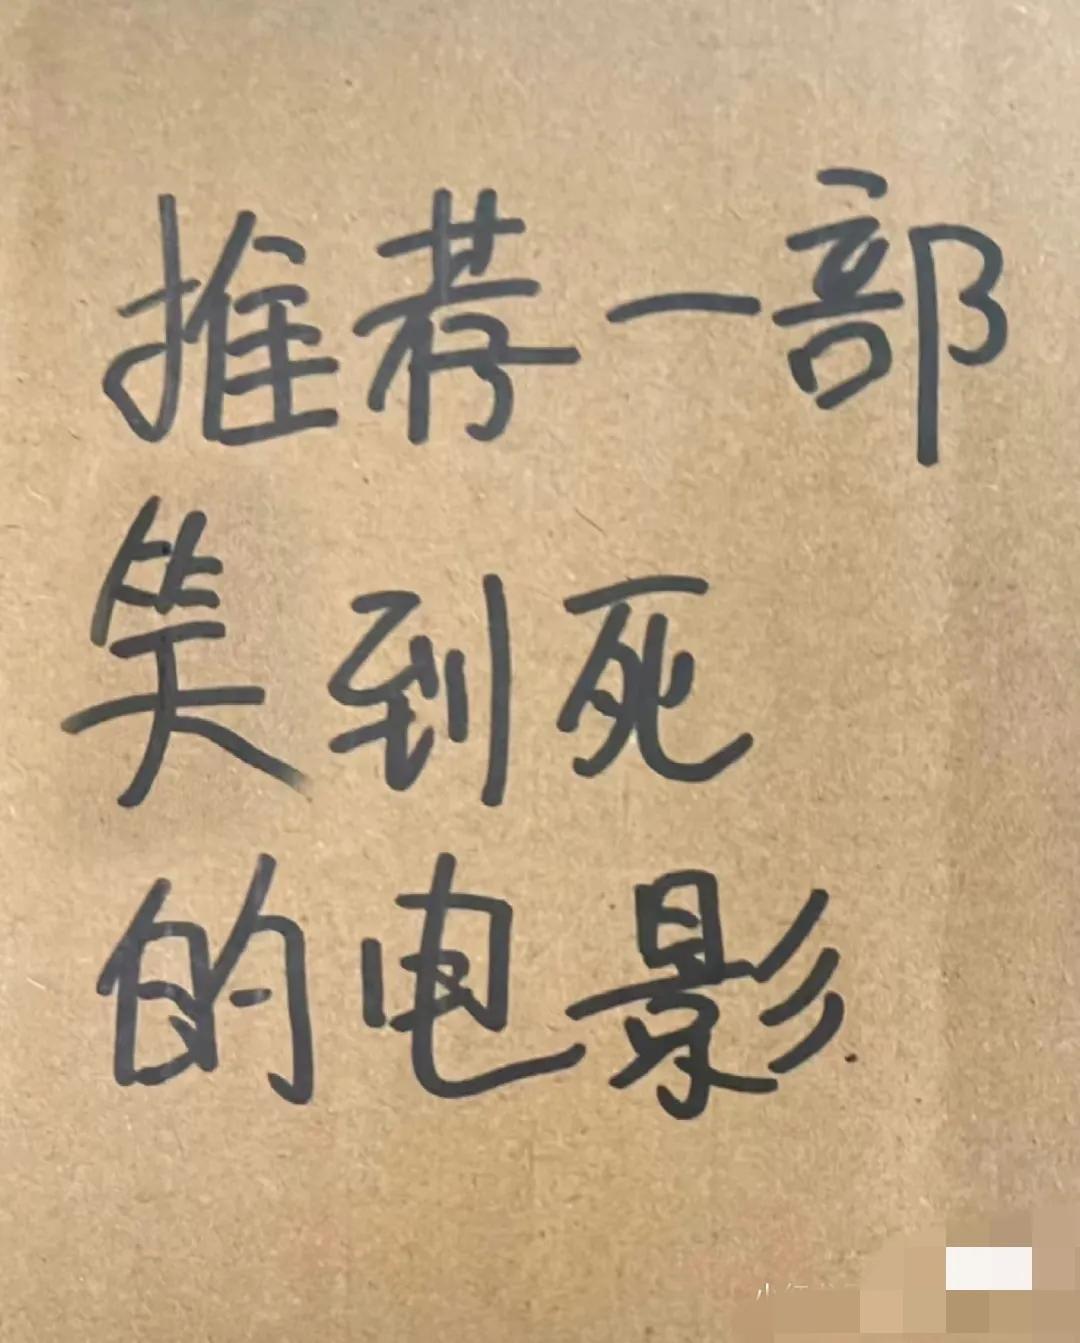 推荐一部
笑到死
的电影